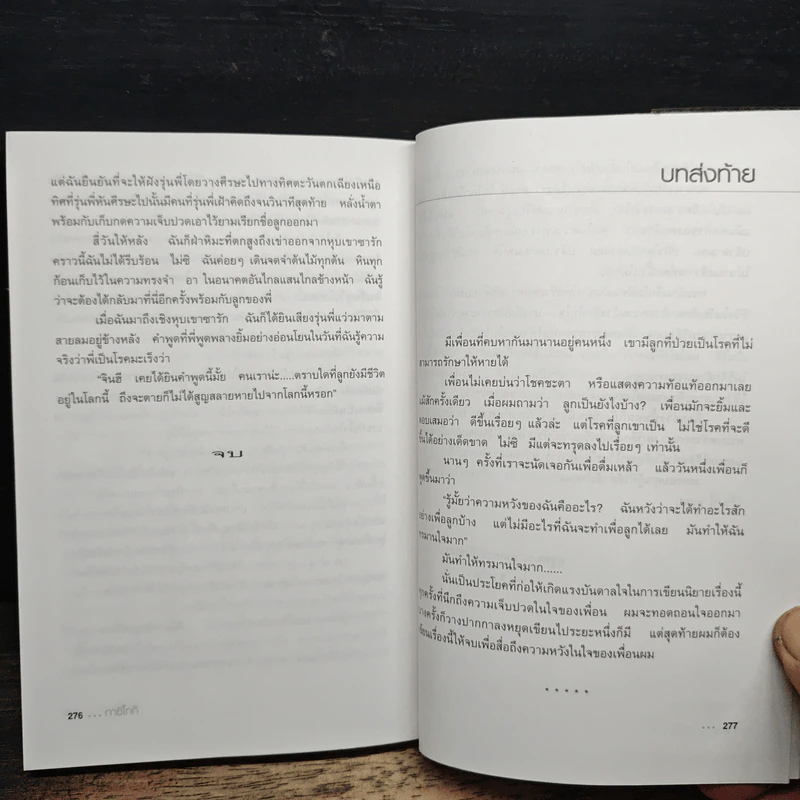 แต่ฉันยืนยันที่จะให้ฝังรุ่นพี่โดยวางศีรษะไปทางทิศตะวันตกเฉียงเหนือ
ทิศที่รุ่นพี่หันศีรษะไปนั้นมีคนที่รุ่นพี่เฝ้าคิดถึงจนวินาทีสุดท้าย หลั่งน้ำตา
พร้อมกับเก็บกดความเจ็บปวดเอาไว้ยามเรียกชื่อลูกออกมา
สี่วันให้หลัง ฉันก็ฝ่าหิมะที่ตกสูงถึงเข่าออกจากหุบเขาซารัก
คราวนี้ฉันไม่ได้รีบร้อน ไม่ซิ ฉันค่อยๆ เดินจดจำต้นไม้ทุกต้น หินทุก
ก้อนเก็บไว้ในความทรงจำ อา ในอนาคตอันไกลแสนไกลข้างหน้า ฉันรู้
ว่าจะต้องได้กลับมาที่นี่อีกครั้งพร้อมกับลูกของพี่
เมื่อฉันมาถึงเชิงหุบเขาซารัก ฉันก็ได้ยินเสียงรุ่นพี่แว่วมาตาม
สายลมอยู่ข้างหลัง คำพูดที่พี่พูดพลางยิ้มอย่างอ่อนโยนในวันที่ฉันรู้ความ
จริงว่าพี่เป็นโรคมะเร็งว่า
“จินฮี เคยได้ยินคำพูดนี้มั้ย คนเราน่ะ.....ตราบใดที่ลูกยังมีชีวิต
อยู่ในโลกนี้ ถึงจะตายก็ไม่ได้สูญสลายหายไปจากโลกนี้หรอก”
จบ
276 ... กาซิโกกิ
บทส่งท้าย
มีเพื่อนที่คบหากันมานานอยู่คนหนึ่ง เขามีลูกที่ป่วยเป็นโรคที่ไม่
สามารถรักษาให้หายได้
เพื่อนไม่เคยบ่นว่าโชคชะตา หรือแสดงความท้อแท้ออกมาเลย
แม้สักครั้งเดียว เมื่อผมถามว่า ลูกเป็นยังไงบ้าง? เพื่อนมักจะยิ้มและ
ตอบเสมอว่า ดีขึ้นเรื่อยๆ แล้วล่ะ แต่โรคที่ลูกเขาเป็น ไม่ใช่โรคที่จะดี
ขึ้นได้อย่างเด็ดขาด ไม่ซิ มีแต่จะทรุดลงไปเรื่อยๆ เท่านั้น
นานๆ ครั้งที่เราจะนัดเจอกันเพื่อดื่มเหล้า แล้ววันหนึ่งเพื่อนก็
พูดขึ้นมาว่า
“รู้มั้ยว่าความหวังของฉันคืออะไร? ฉันหวังว่าจะได้ทำอะไรสัก
อย่างเพื่อลูกบ้าง แต่ไม่มีอะไรที่ฉันจะทำเพื่อลูกได้เลย มันทำให้ฉัน
ทรมานใจมาก”
มันทำให้ทรมานใจมาก......
นั่นเป็นประโยคที่ก่อให้เกิดแรงบันดาลใจในการเขียนนิยายเรื่องนี้
ทุกครั้งที่นึกถึงความเจ็บปวดในใจของเพื่อน ผมจะทอดถอนใจออกมา
บางครั้งก็วางปากกาลงหยุดเขียนไประยะหนึ่งก็มี แต่สุดท้ายผมก็ต้อง
เขียนเรื่องนี้ให้จบเพื่อสื่อถึงความหวังในใจของเพื่อนผม
* * * * *
... 277